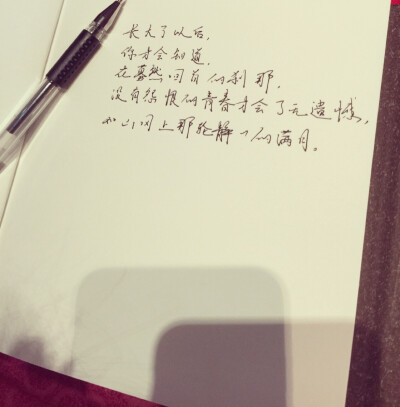 长大了以后，
你才会知道，
在蓦然回首的刹那，
没有怨恨的青春才会了无遗憾，
如山冈上那轮静静的满月。